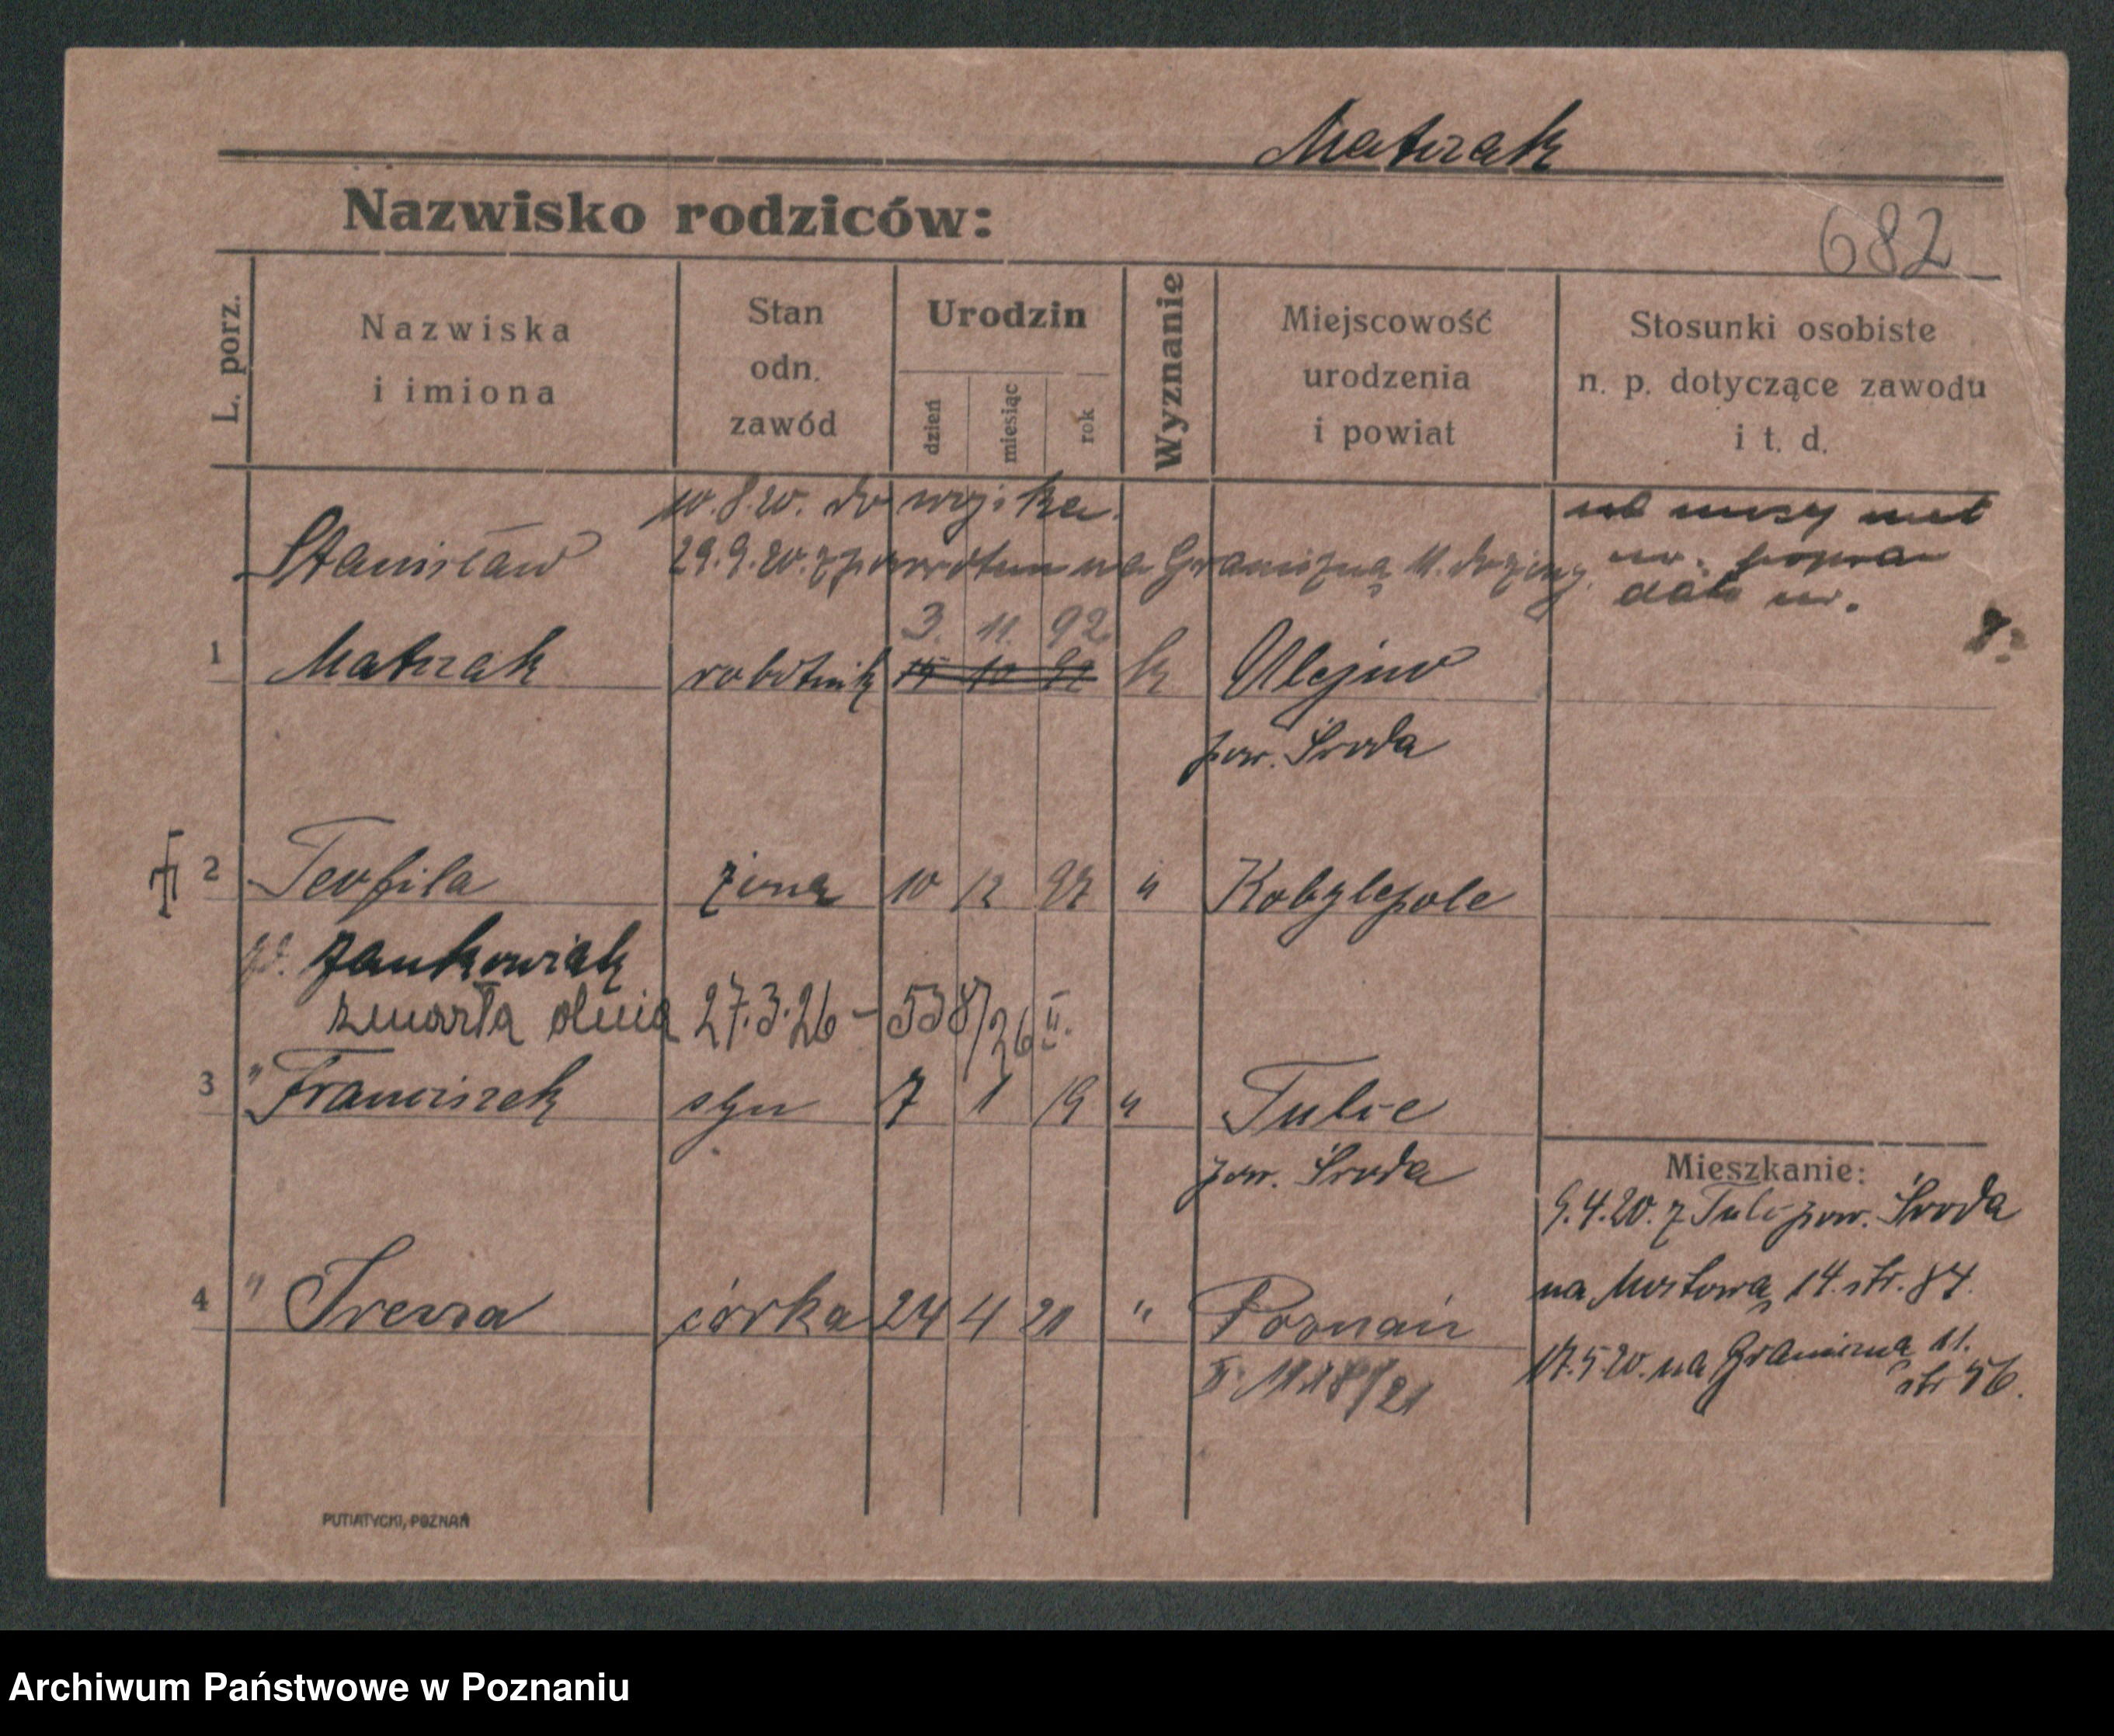 Matczak
Nazwisko rodziców:
682
L. porz.
Nazwiska
i imiona
Stan
odn.
zawód
Urodzin
dzień
miesiąc
rok
Wyznanie
Miejscowość
urodzenia
i powiat
Stosunki osobiste
n. p. dotyczące zawodu
i t. d.
10.8.20. do wojska.
29.9.20. z powrotem na Graniczną 11.
Stanisław
3. 11. 92.
1 Matczak robotnik k Ulejno
pow. Środa
2 Teofila żona 10 12 97 " Kobylepole
Jankowiak
zmarła dnia 27.3.26 - 538/26 II.
3 " Franciszek syn 7 1 19 " Tulce
pow. Środa
Mieszkanie:
9.4.20. z Tulc pow. Środa
na Mostową 14. str. 84.
4 " Ireena córka 24 4 21 " Poznań
17.5.20. na Graniczną 11.
str 56.
II. 1118/21
PUTIATYCKI, POZNAŃ
Archiwum Państwowe w Poznaniu